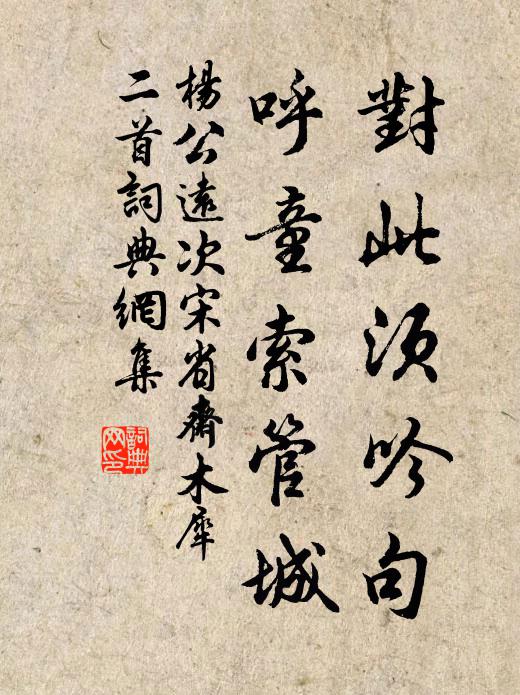 對此須吟句
呼童索管城
楊公遠次宋省齋木犀
二首詞典網集
詞典
网印